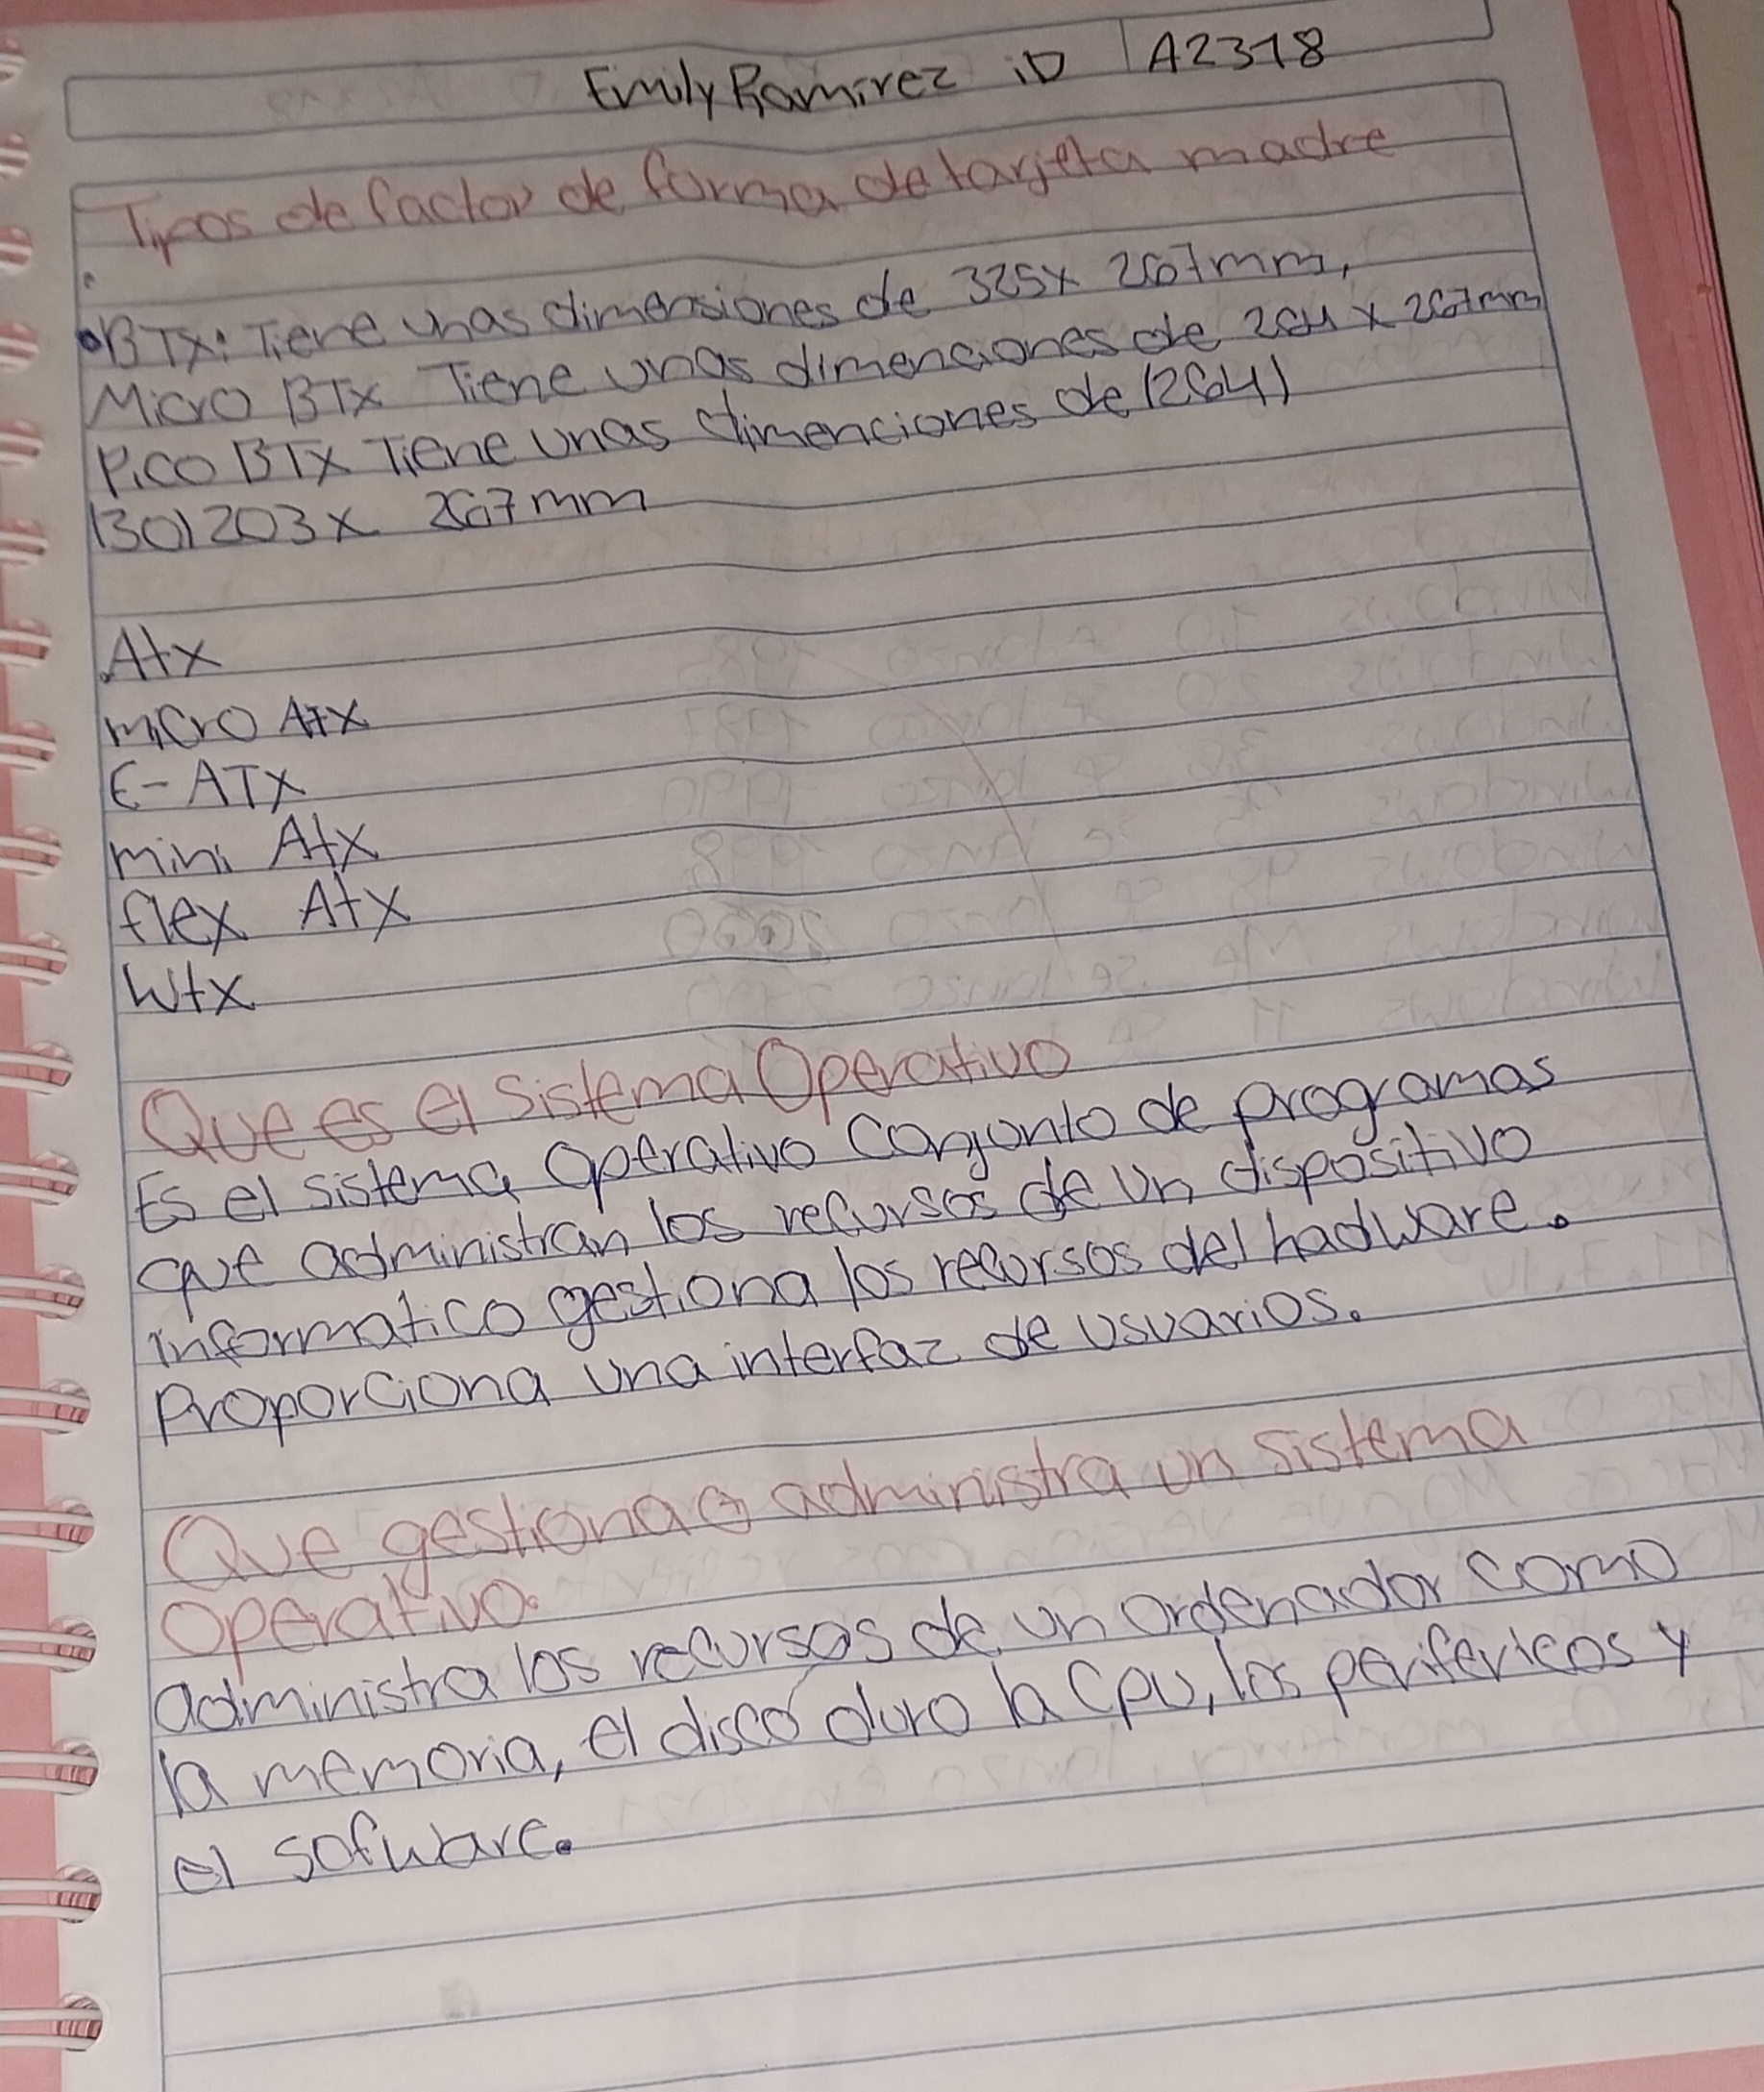 Emily Ramirez iD A2318
Tipos de factor de forma de tarjeta madre
•BTX: Tiene unas dimensiones de 325x 267mm,
Micro BTX Tiene unas dimenciones de 264 x 267mm
Pico BTX Tiene unas dimenciones de (264)
(30)203x 267mm
.Atx
micro Atx
E-ATX
mini Atx
flex Atx
Wtx
Que es el sistema Operativo
Es el sistema operativo conjunto de programas
que administran los recursos de un dispositivo
informatico gestiona los recursos del hadware.
Proporciona una interfaz de usuarios.
Que gestiona o administra un sistema
operativo.
administra los recursos de un ordenador como
la memoria, el disco duro la cpu, los perifericos y
el sofware.